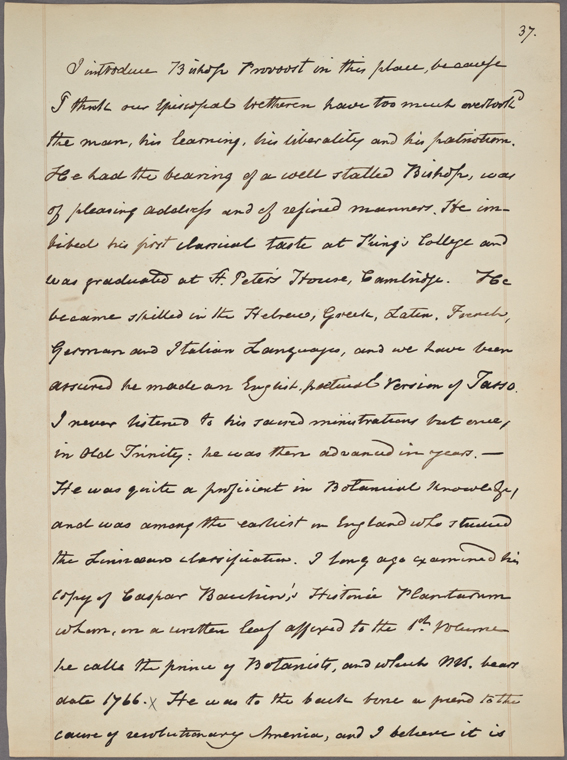 37.
I introduce Bishop Provoost in this place, because
I think our Episcopal bretheren have too much overlook'd
the man, his learning, his liberality and his patriotism.
He had the bearing of a well stalled Bishop, was
of pleasing address and of refined manners. He im-
bibed his first classical taste at King's College and
was graduated at St. Peter's House, Cambridge. He
became skilled in the Hebrew, Greek, Latin, French,
German and Italian Languages, and we have been
assured he made an English poetical version of Tasso.
I never listened to his sacred ministrations but once,
in Old Trinity: he was then advanced in years. —
He was quite a proficient in Botanical knowledge,
and was among the earliest in England who studied
the Linnæan classification. I long ago examined his
copy of Caspar Bauhin's Historia Plantarum
whom, on a written leaf affixed to the 1st. Volume
he calls the prince of Botanists, and which MS. bears
date 1766. x He was to the back bone a friend to the
cause of revolutionary America, and I believe it is